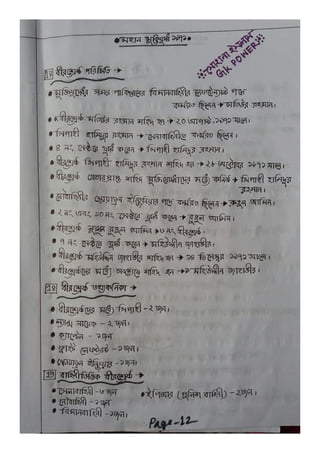 মহান মুক্তিযুদ্ধ ১৯৭১
GK POWER
বীরশ্রেষ্ঠ পরিচিতি →
• মুক্তিযুদ্ধের সময় পাকিস্তানের বিমানবাহিনীর ফ্লাইট লেফটেন্যান্ট পদে
কর্মরত ছিলেন → মতিউর রহমান।
• বীরশ্রেষ্ঠ মতিউর রহমান শহিদ হন → ২০ আগস্ট, ১৯৭১ সালে।
• সিপাহী হামিদুর রহমান → সেনাবাহিনীতে কর্মরত ছিলেন।
• ৪ নং সেক্টরে যুদ্ধ করেন → সিপাহী হামিদুর রহমান।
• বীরশ্রেষ্ঠ সিপাহী হামিদুর রহমান শহিদ হন → ২৮ অক্টোবর ১৯৭১ সালে।
• বীরশ্রেষ্ঠ খেতাবপ্রাপ্ত শহিদ মুক্তিযোদ্ধাদের মধ্যে কনিষ্ঠ → সিপাহী হামিদুর
রহমান।
• নৌবাহিনীর স্কোয়াড্রন ইঞ্জিনিয়ার পদে কর্মরত ছিলেন → রুহুল আমিন।
• ২ নং এবং ১০ নং সেক্টরে যুদ্ধ করেন → রুহুল আমিন।
• বীরশ্রেষ্ঠ রুহুল আমিন
• ৭ নং সেক্টরে যুদ্ধ করেন → মহিউদ্দীন জাহাঙ্গীর।
• বীরশ্রেষ্ঠ মহিউদ্দীন জাহাঙ্গীর শহিদ হন → ১৪ ডিসেম্বর ১৯৭১ সালে।
• বীরশ্রেষ্ঠদের মধ্যে শহিদ হন → মহিউদ্দীন জাহাঙ্গীর।
বীরশ্রেষ্ঠ তথ্যকনিকা →
• বীরশ্রেষ্ঠদের মধ্যে সিপাহী - ২ জন।
• ল্যান্স নায়েক - ২ জন।
• ক্যাপ্টেন - ১ জন
• ফ্লাইট লেফটেন্যান্ট - ১ জন।
• স্কোয়াড্রন ইঞ্জিনিয়ার - ১ জন।
বাহিনীভিত্তিক বীরশ্রেষ্ঠ →
• সেনাবাহিনী - ৩ জন • ইপিআর (পুলিশ বাহিনী) - ২ জন।
• নৌবাহিনী - ১ জন
• বিমানবাহিনী - ১ জন।
Page-12